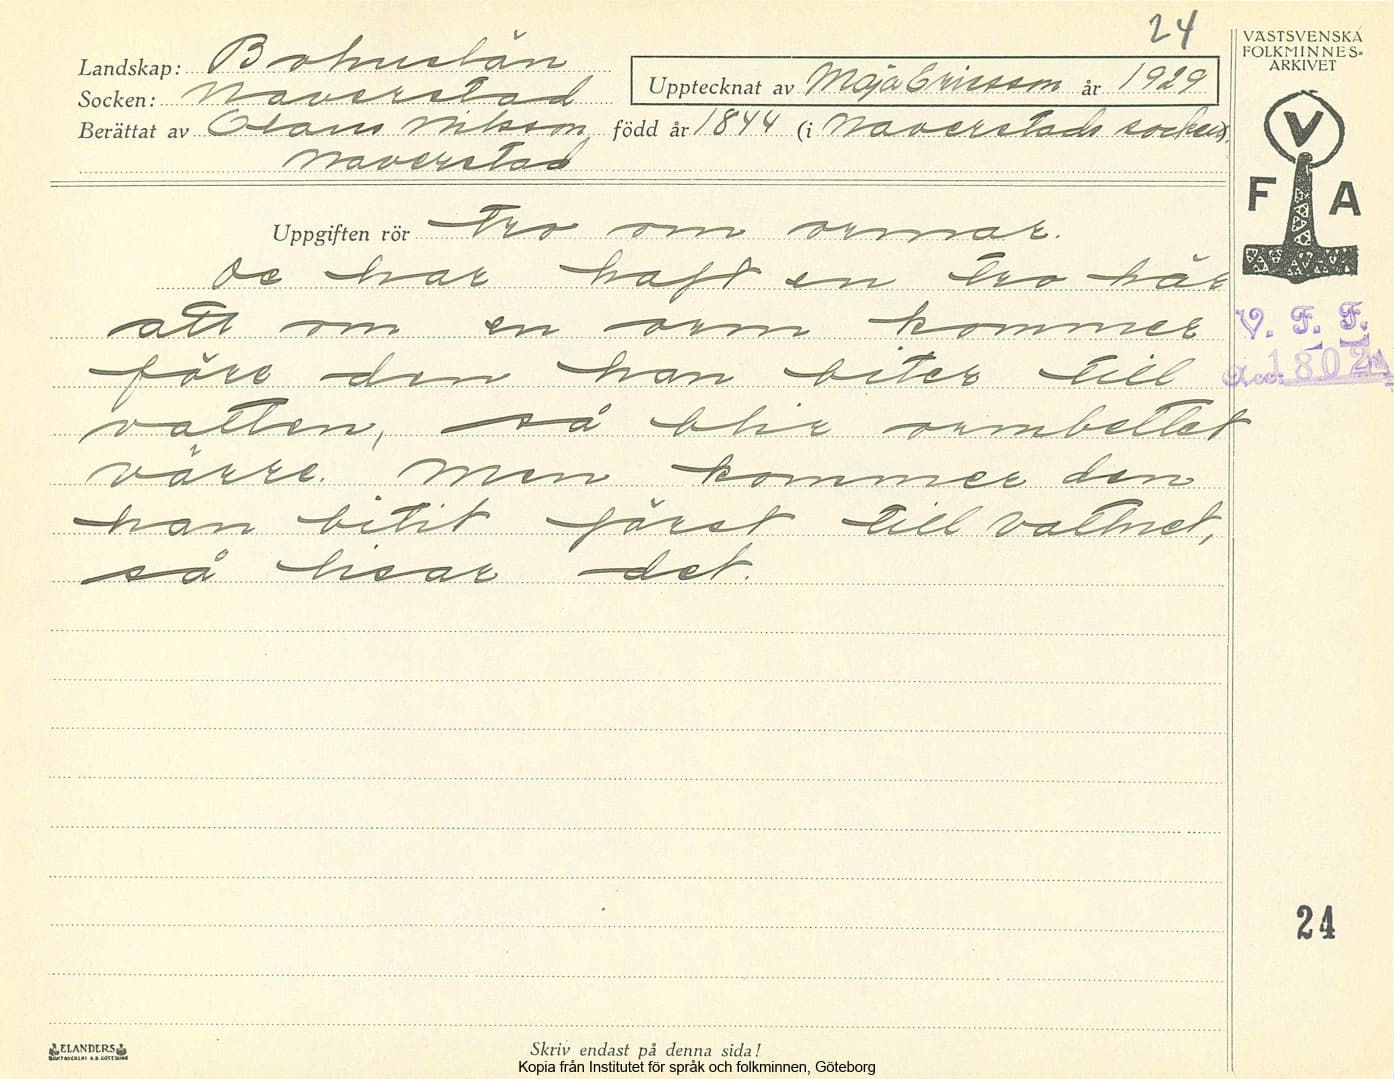 24
VÄSTSVENSKA
FOLKMINNES-
ARKIVET
Landskap: Bohuslän
Upptecknat av Maja Ericsson år 1929
Socken: Naverstad
Berättat av Olaus Nilsson, född år 1844 (i Naverstads socken),
Naverstad
V
F A
Uppgiften rör Tro om ormar.
De har haft en tro här
att om en orm kommer
före den han biter till
vatten, så blir ormbettet
värre. Men kommer den
han bitit först till vattnet,
så lisar det.
V. F. F.
Acc. 1802
24
ELANDERS
BOKTRYCKERI A.B. GÖTEBORG
Skriv endast på denna sida!
Kopia från Institutet för språk och folkminnen, Göteborg